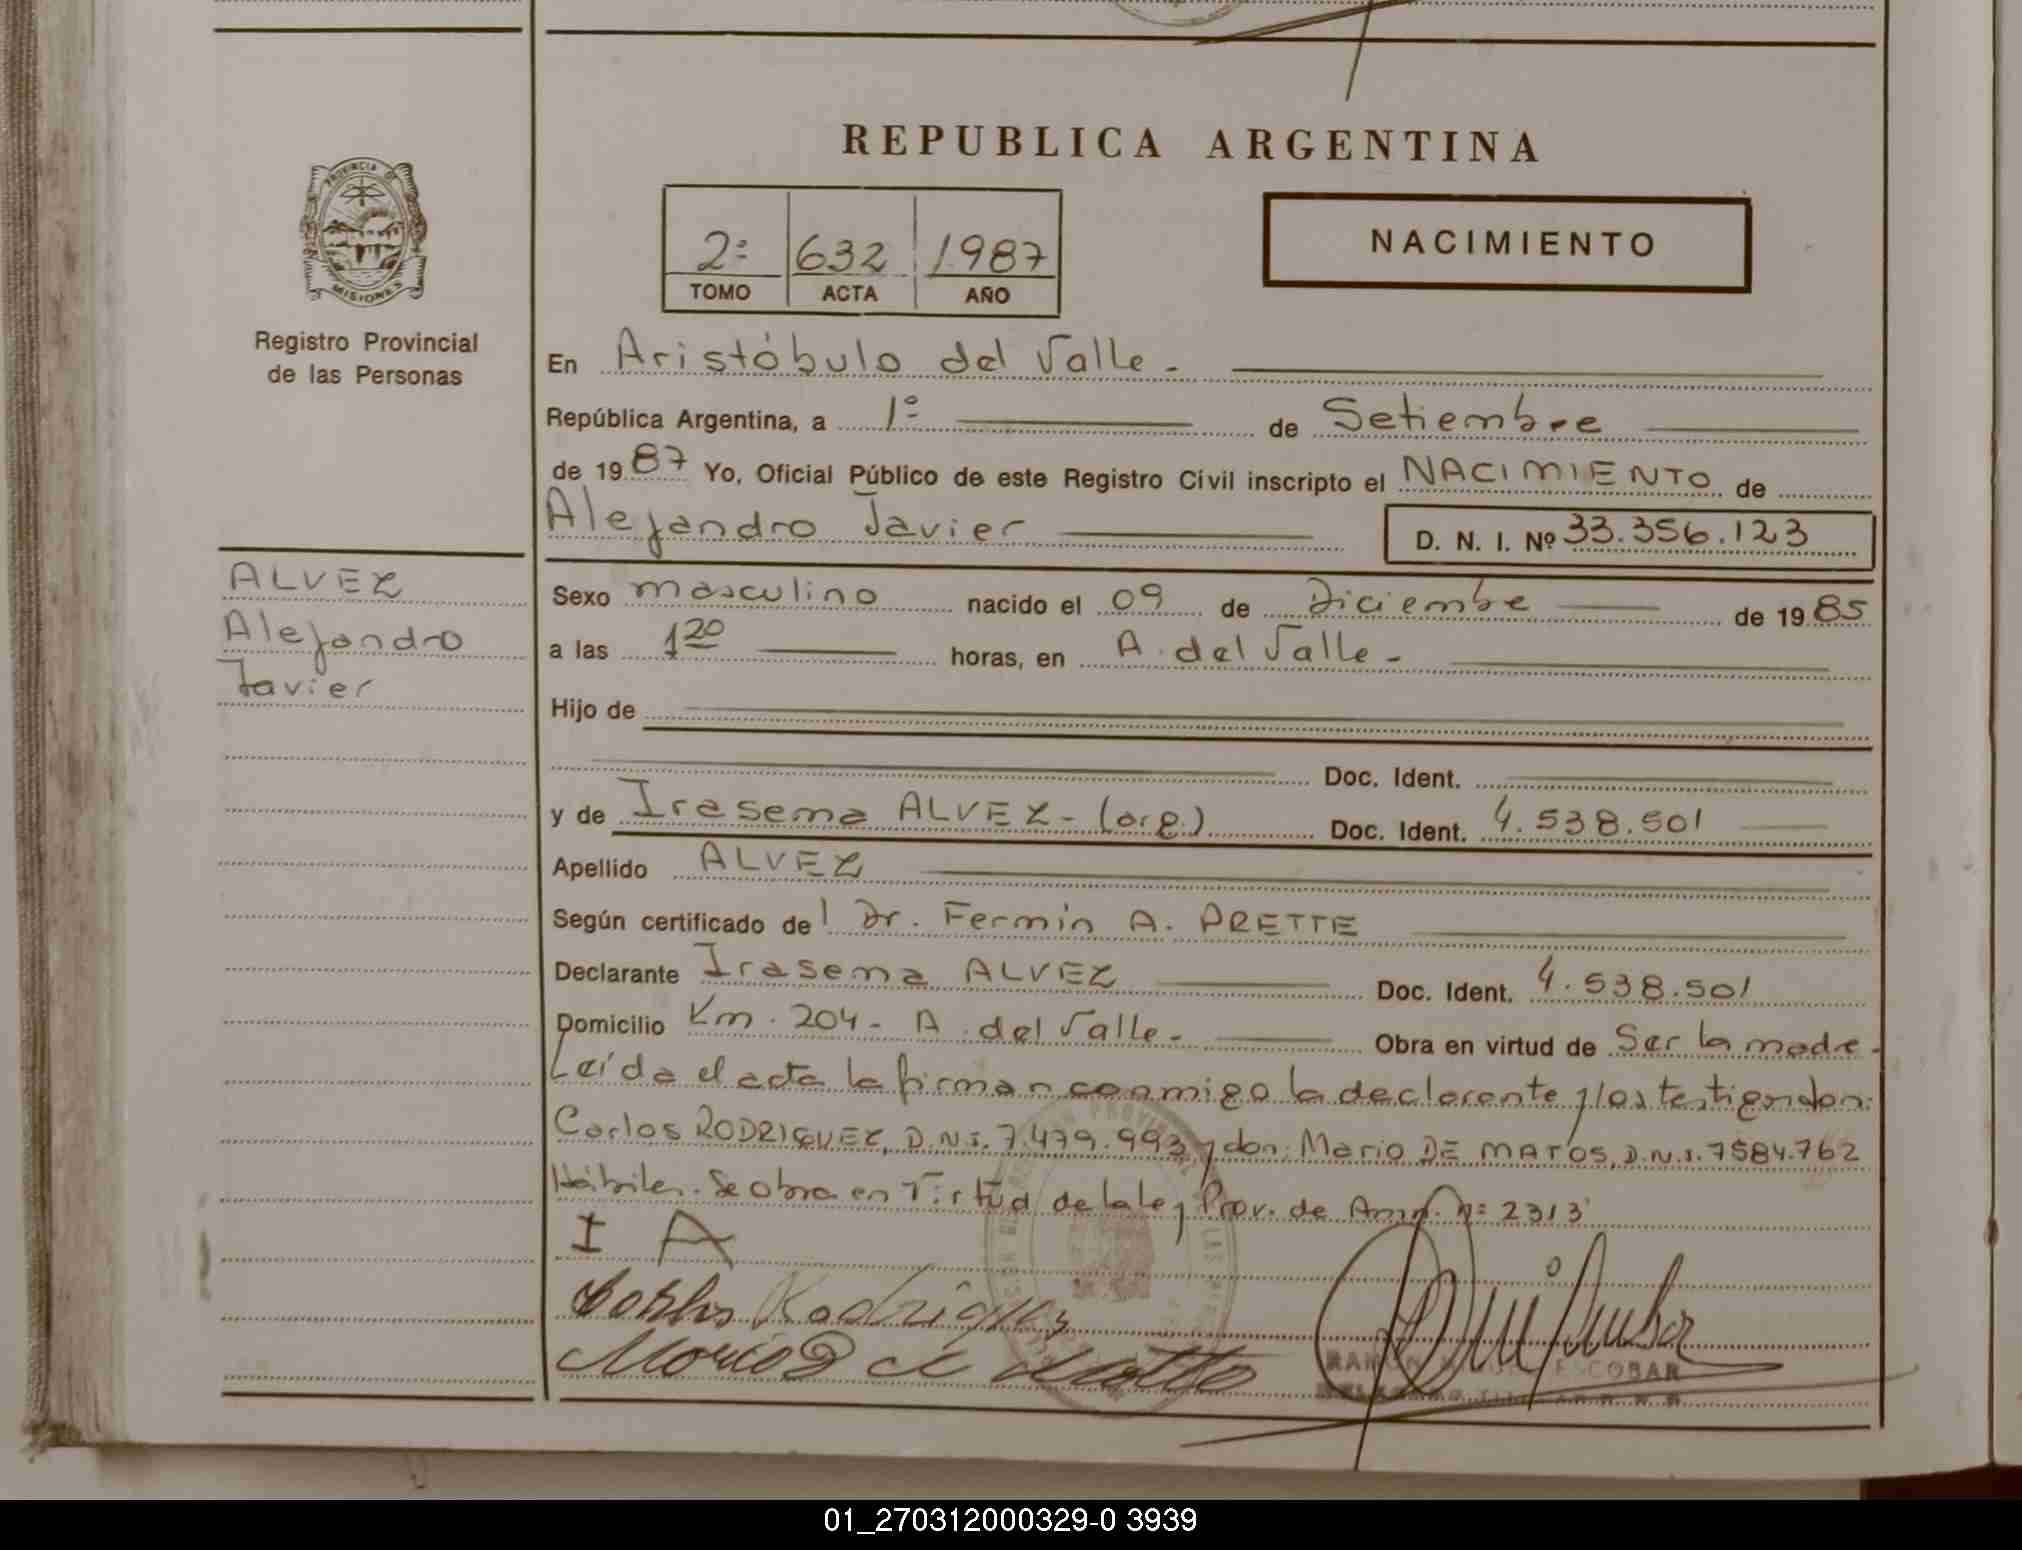 REPUBLICA ARGENTINA
PROVINCIA DE
MISIONES
Registro Provincial
de las Personas
2º 632 1987
TOMO ACTA AÑO
NACIMIENTO
En Aristóbulo del Valle.-
República Argentina, a 1º de Setiembre
de 1987 Yo, Oficial Público de este Registro Civil inscripto el NACIMIENTO de
Alejandro Javier D. N. I. Nº 33.356.123
ALVEZ
Alejandro
Javier
Sexo masculino nacido el 09 de Diciembre de 1985
a las 1 20 horas, en A. del Valle.-
Hijo de
Doc. Ident.
y de Irasema ALVEZ - (arg.) Doc. Ident. 4.538.501
Apellido ALVEZ
Según certificado del Dr. Fermín A. PRETTE
Declarante Irasema ALVEZ Doc. Ident. 4.538.501
Domicilio Km. 204 - A. del Valle.- Obra en virtud de Ser la madre.-
Leída el acta la firman conmigo la declarante y los testigos don:
Carlos RODRIGUEZ, D.N.I. 7.479.993 y don: Mario DE MATOS, D.N.I. 7584.762
Hábiles. Se obra en Virtud de la ley Prov. de Amn. nº 2313
I A
Carlos Rodrigues
Mario D
ESCOBAR
01_270312000329-0 3939